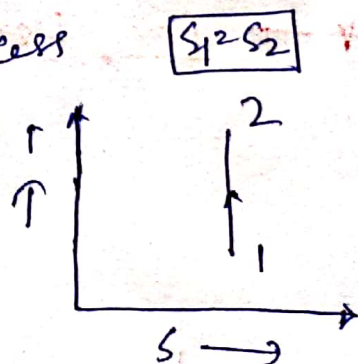 cess S₁=S₂
2
T
↑
1
S →